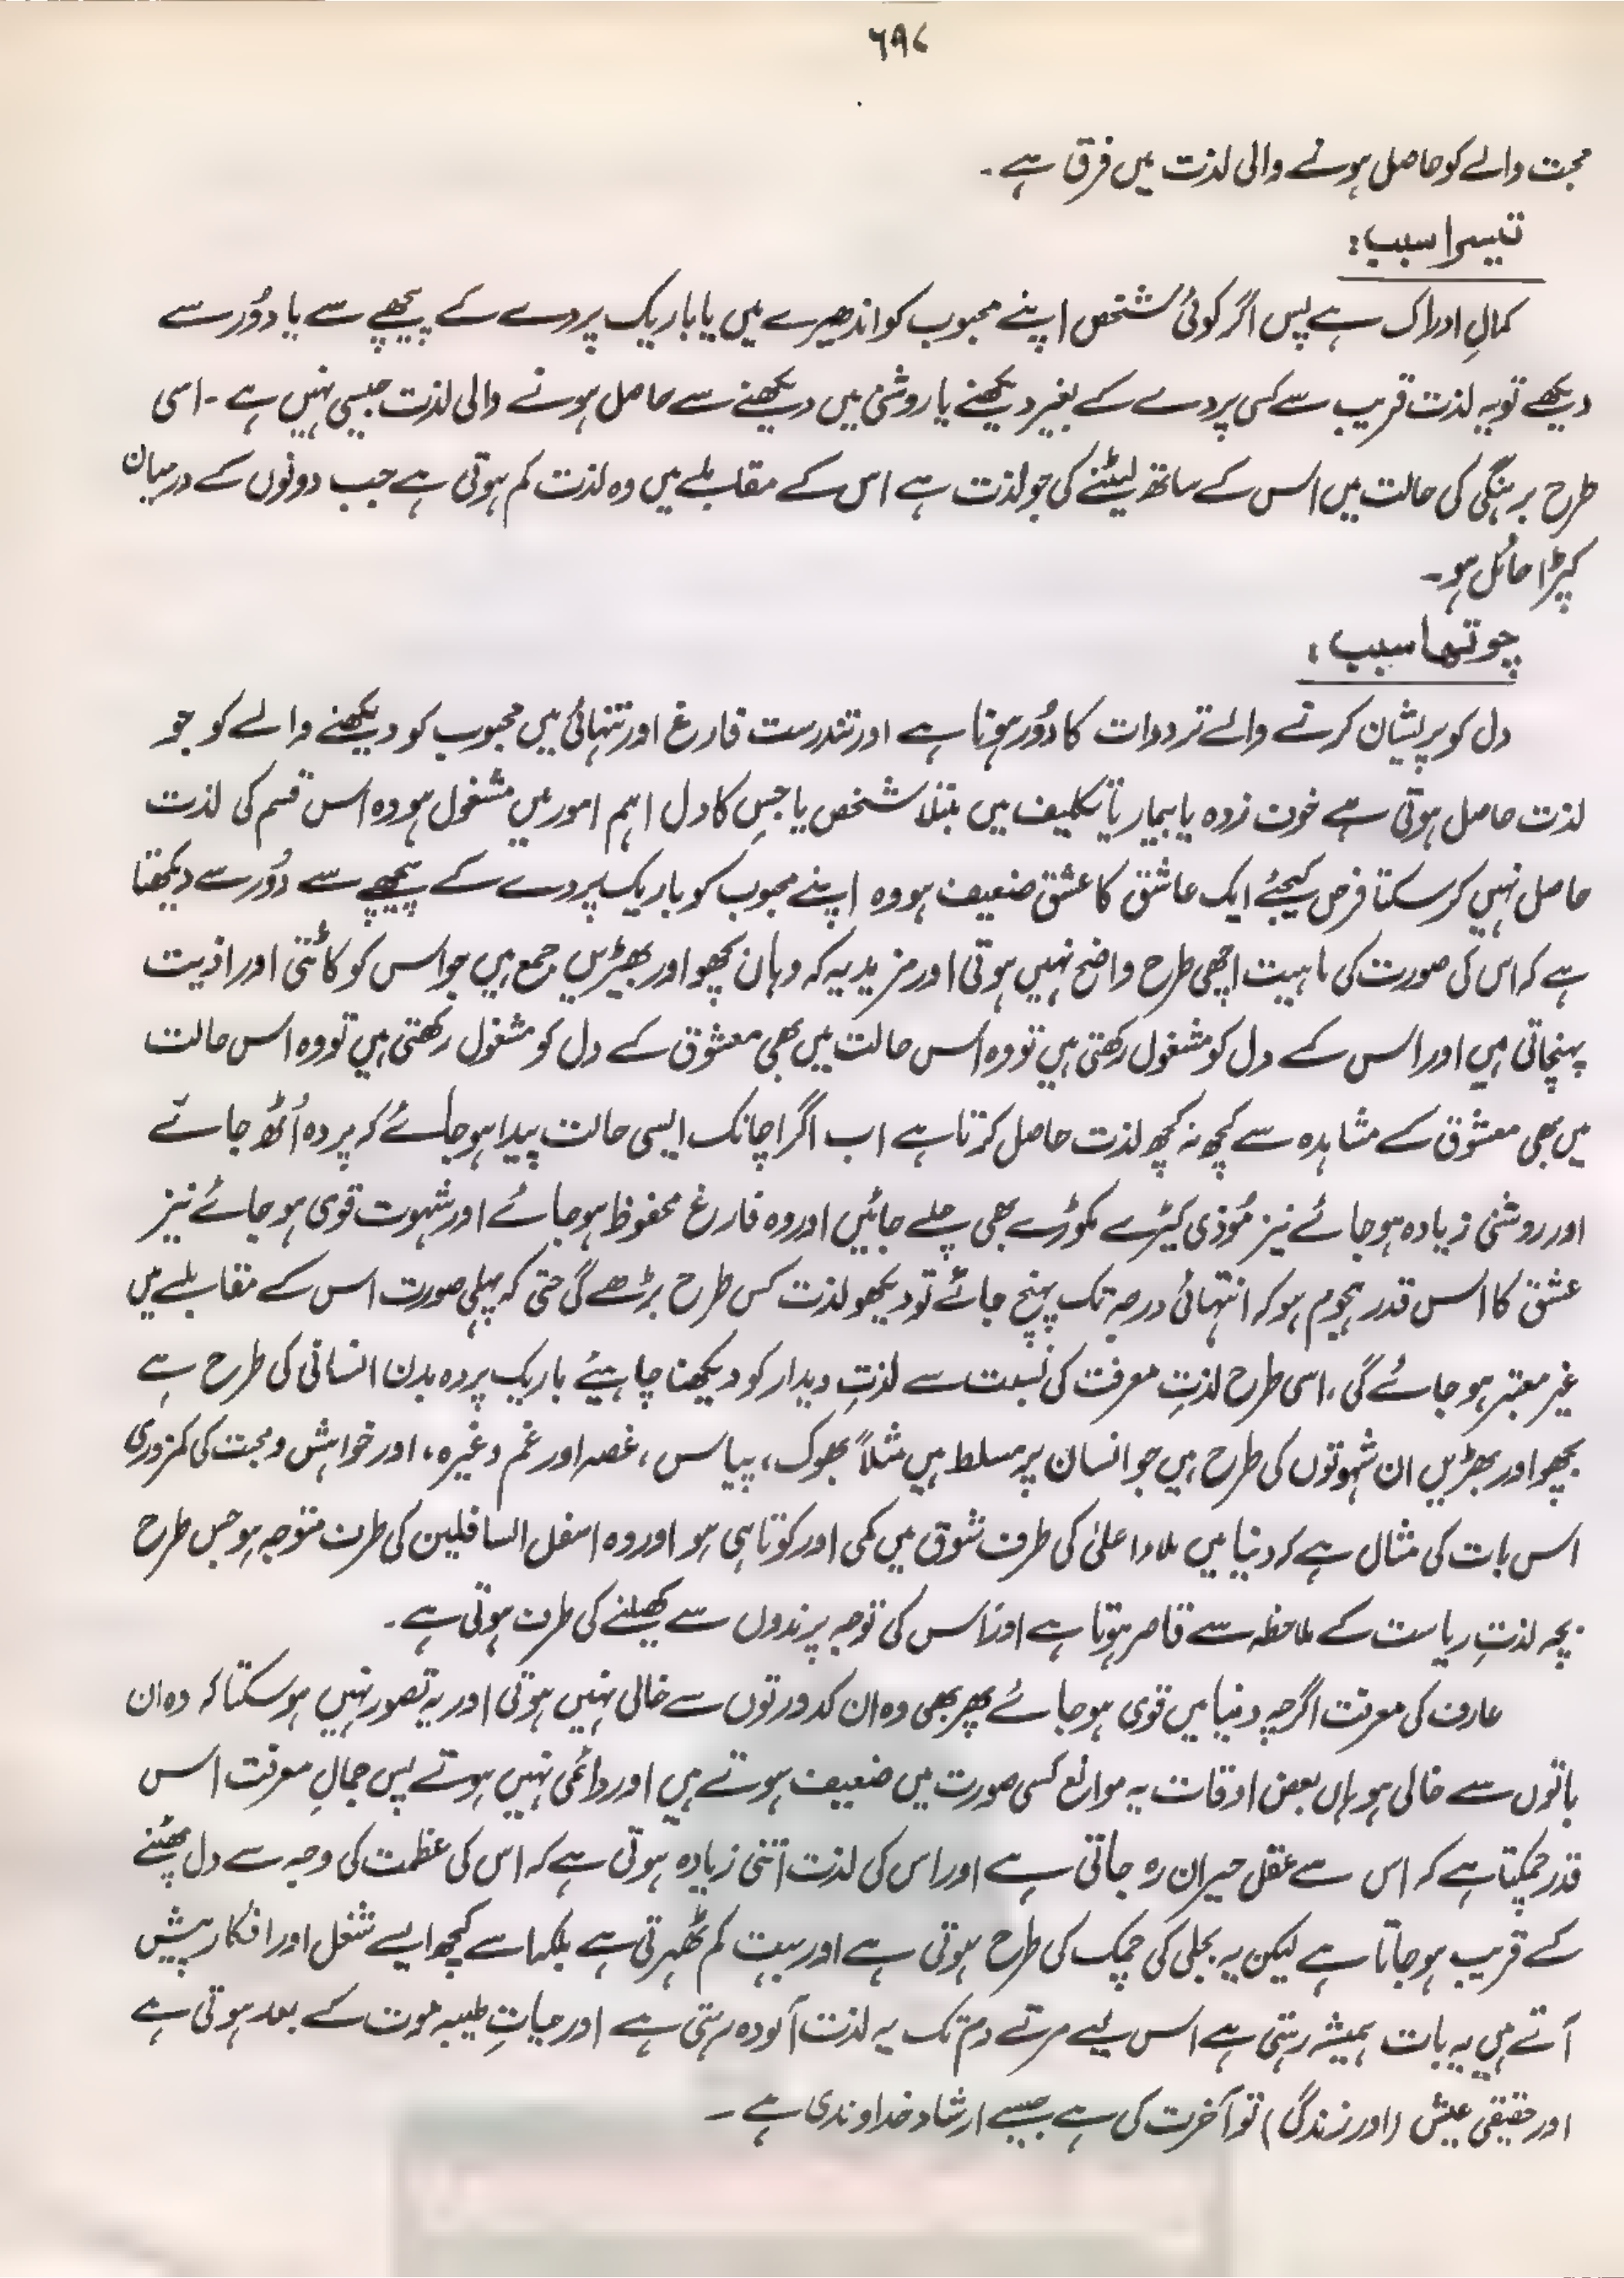 ۶۹۷
محبت والے کو حاصل ہونے والی لذت میں فرق ہے۔
تیسرا سبب:
کمالِ ادراک ہے پس اگر کوئی شخص اپنے محبوب کو اندھیرے میں یا باریک پردے کے پیچھے سے یا دُور سے
دیکھے تو یہ لذت قریب سے کسی پردے کے بغیر دیکھنے یا روشنی میں دیکھنے سے حاصل ہونے والی لذت جیسی نہیں ہے۔ اسی
طرح برہنگی کی حالت میں اس کے ساتھ لیٹنے کی جو لذت ہے اس کے مقابلے میں وہ لذت کم ہوتی ہے جب دونوں کے درمیان
کپڑا حائل ہو۔
چوتھا سبب:
دل کو پریشان کرنے والے ترددات کا دُور ہونا ہے اور تندرست فارغ اور تنہائی میں محبوب کو دیکھنے والے کو جو
لذت حاصل ہوتی ہے خوف زدہ یا بیمار یا تکلیف میں مبتلا شخص یا جس کا دل اہم امور میں مشغول ہو وہ اس قسم کی لذت
حاصل نہیں کر سکتا فرض کیجئے ایک عاشق کا عشق ضعیف ہو وہ اپنے محبوب کو باریک پردے کے پیچھے سے دُور سے دیکھتا
ہے کہ اس کی صورت کی ماہیت اچھی طرح واضح نہیں ہوتی اور مزید یہ کہ وہاں بچھو اور بھیڑیں جمع ہیں جو اس کو کاٹتی اور اذیت
پہنچاتی ہیں اور اس کے دل کو مشغول رکھتی ہیں تو وہ اس حالت میں بھی معشوق کے دل کو مشغول رکھتی ہیں تو وہ اس حالت
میں بھی معشوق کے مشاہدہ سے کچھ نہ کچھ لذت حاصل کرتا ہے اب اگر اچانک ایسی حالت پیدا ہو جائے کہ پردہ اُٹھ جائے
اور روشنی زیادہ ہو جائے نیز مُوذی کیڑے مکوڑے بھی چلے جائیں اور وہ فارغ محفوظ ہو جائے اور شہوت قوی ہو جائے نیز
عشق کا اس قدر ہجوم ہو کہ انتہائی درجہ تک پہنچ جائے تو دیکھو لذت کس طرح بڑھے گی حتی کہ پہلی صورت اس کے مقابلے میں
غیر معتبر ہو جائے گی، اسی طرح لذتِ معرفت کی نسبت سے لذتِ دیدار کو دیکھنا چاہیئے باریک پردہ بدن انسانی کی طرح ہے
بچھو اور بھڑیں ان شہوتوں کی طرح ہیں جو انسان پر مسلط ہیں مثلاً بھوک، پیاس، غصہ اور غم وغیرہ، اور خواہش و محبت کی کمزوری
اس بات کی مثال ہے کہ دنیا میں ملاء اعلیٰ کی طرف شوق میں کمی اور کوتاہی ہو اور وہ اسفل السافلین کی طرف متوجہ ہو جس طرح
بچہ لذتِ ریاست کے ملاحظہ سے قاصر ہوتا ہے اور اس کی توجہ پرندوں سے کھیلنے کی طرف ہوتی ہے۔
عارف کی معرفت اگرچہ دنیا میں قوی ہو جائے پھر بھی وہ ان کدورتوں سے خالی نہیں ہوتی اور یہ تصور نہیں ہو سکتا کہ وہ ان
باتوں سے خالی ہو ہاں بعض اوقات یہ موانع کسی صورت میں ضعیف ہوتے ہیں اور دائمی نہیں ہوتے پس جمالِ معرفت اس
قدر چمکتا ہے کہ اس سے عقل حیران رہ جاتی ہے اور اس کی لذت اتنی زیادہ ہوتی ہے کہ اس کی عظمت کی وجہ سے دل پھٹنے
کے قریب ہو جاتا ہے لیکن یہ بجلی کی چمک کی طرح ہوتی ہے اور بہت کم ٹھہرتی ہے بلکہ اسے کچھ ایسے شغل اور افکار پیش
آتے ہیں یہ بات ہمیشہ رہتی ہے اس لیے مرتے دم تک یہ لذت آلودہ رہتی ہے اور حیاتِ طیبہ موت کے بعد ہوتی ہے
اور حقیقی عیش (اور زندگی) تو آخرت کی ہے جیسے ارشاد خداوندی ہے۔